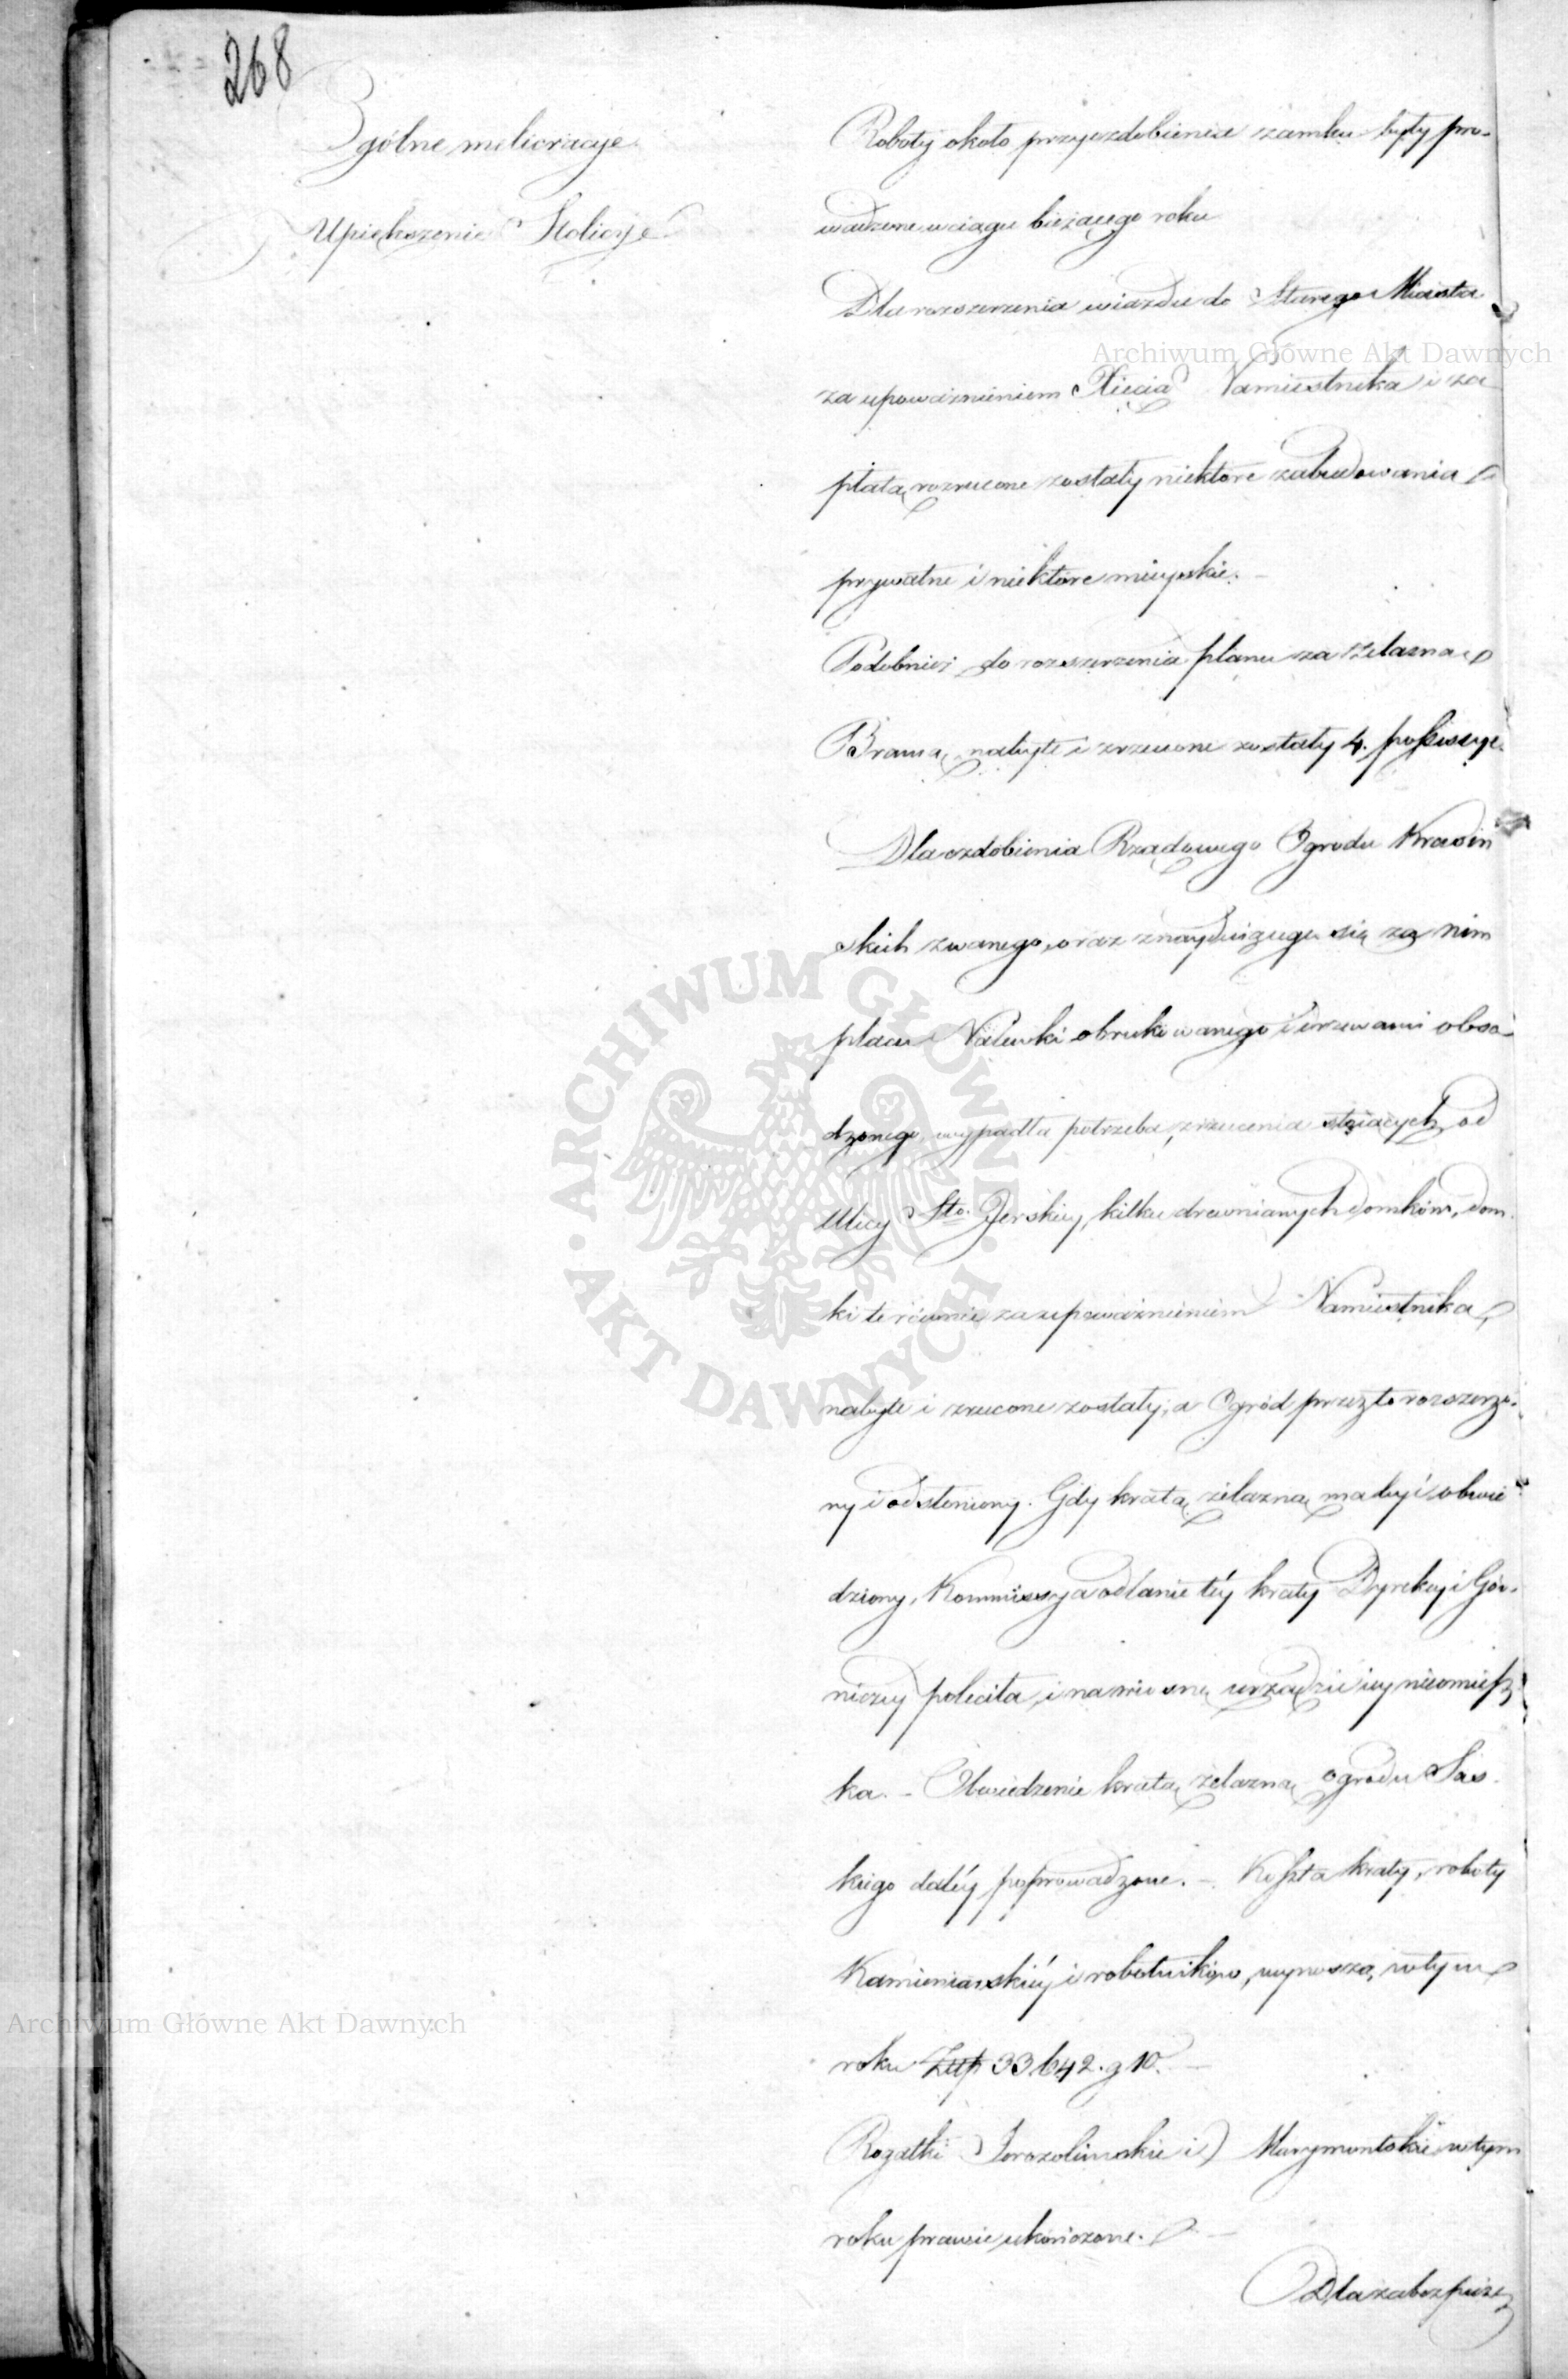 268
Ogólne melioracye
Upiększenie Stolicy
Roboty około przyozdobienia zamku były pro-
wadzone w ciągu bieżącego roku
Dla rozszerzenia wiazdu do Starego Miasta
za upoważnieniem Xięcia Namiestnika i za
płatą, rozrucone zostały niektóre zabudowania
prywatne i niektóre mieyskie. -
Podobnież do rozszerzenia placu za żelazną
Bramą, nabyte i zrzucone zostały 4. possessye.
Dla ozdobienia Rządowego Ogrodu Krasiń
skich zwanego, oraz znayduiącego się za nim
placu Nalewki obrukowanego i drzewami obsa-
dzonego, wypadła potrzeba, zrzucenia stoiących od
Ulicy Sto. Jerskiey, kilku drewnianych domków, dom-
ki te równie za upoważnieniem Namiestnika,
nabyte i zrucone zostały, a Ogród przez to rozszerzo-
ny i odsłoniony. Gdy kratą żelazną ma być obwie
dziony, Kommissya odlanie téy kraty Dyrekcyi Gór-
niczey poleciła, i na wiosnę urządzić iey nieomiesz
ka. - Obwiedzenie kratą żelazną ogrodu Sas-
kiego daléy poprowadzone. - Koszta kraty, roboty
Kamieniarskiéy i robotników, wynoszą, w tym
roku Złtp 33642. g 10. -
Rogatki Jerozolimskie i Marymontskie w tym
roku prawie ukończone. -
Dla zabezpiecze
Archiwum Główne Akt Dawnych
ARCHIWUM GŁÓWNE · AKT DAWNYCH ·
Archiwum Główne Akt Dawnych